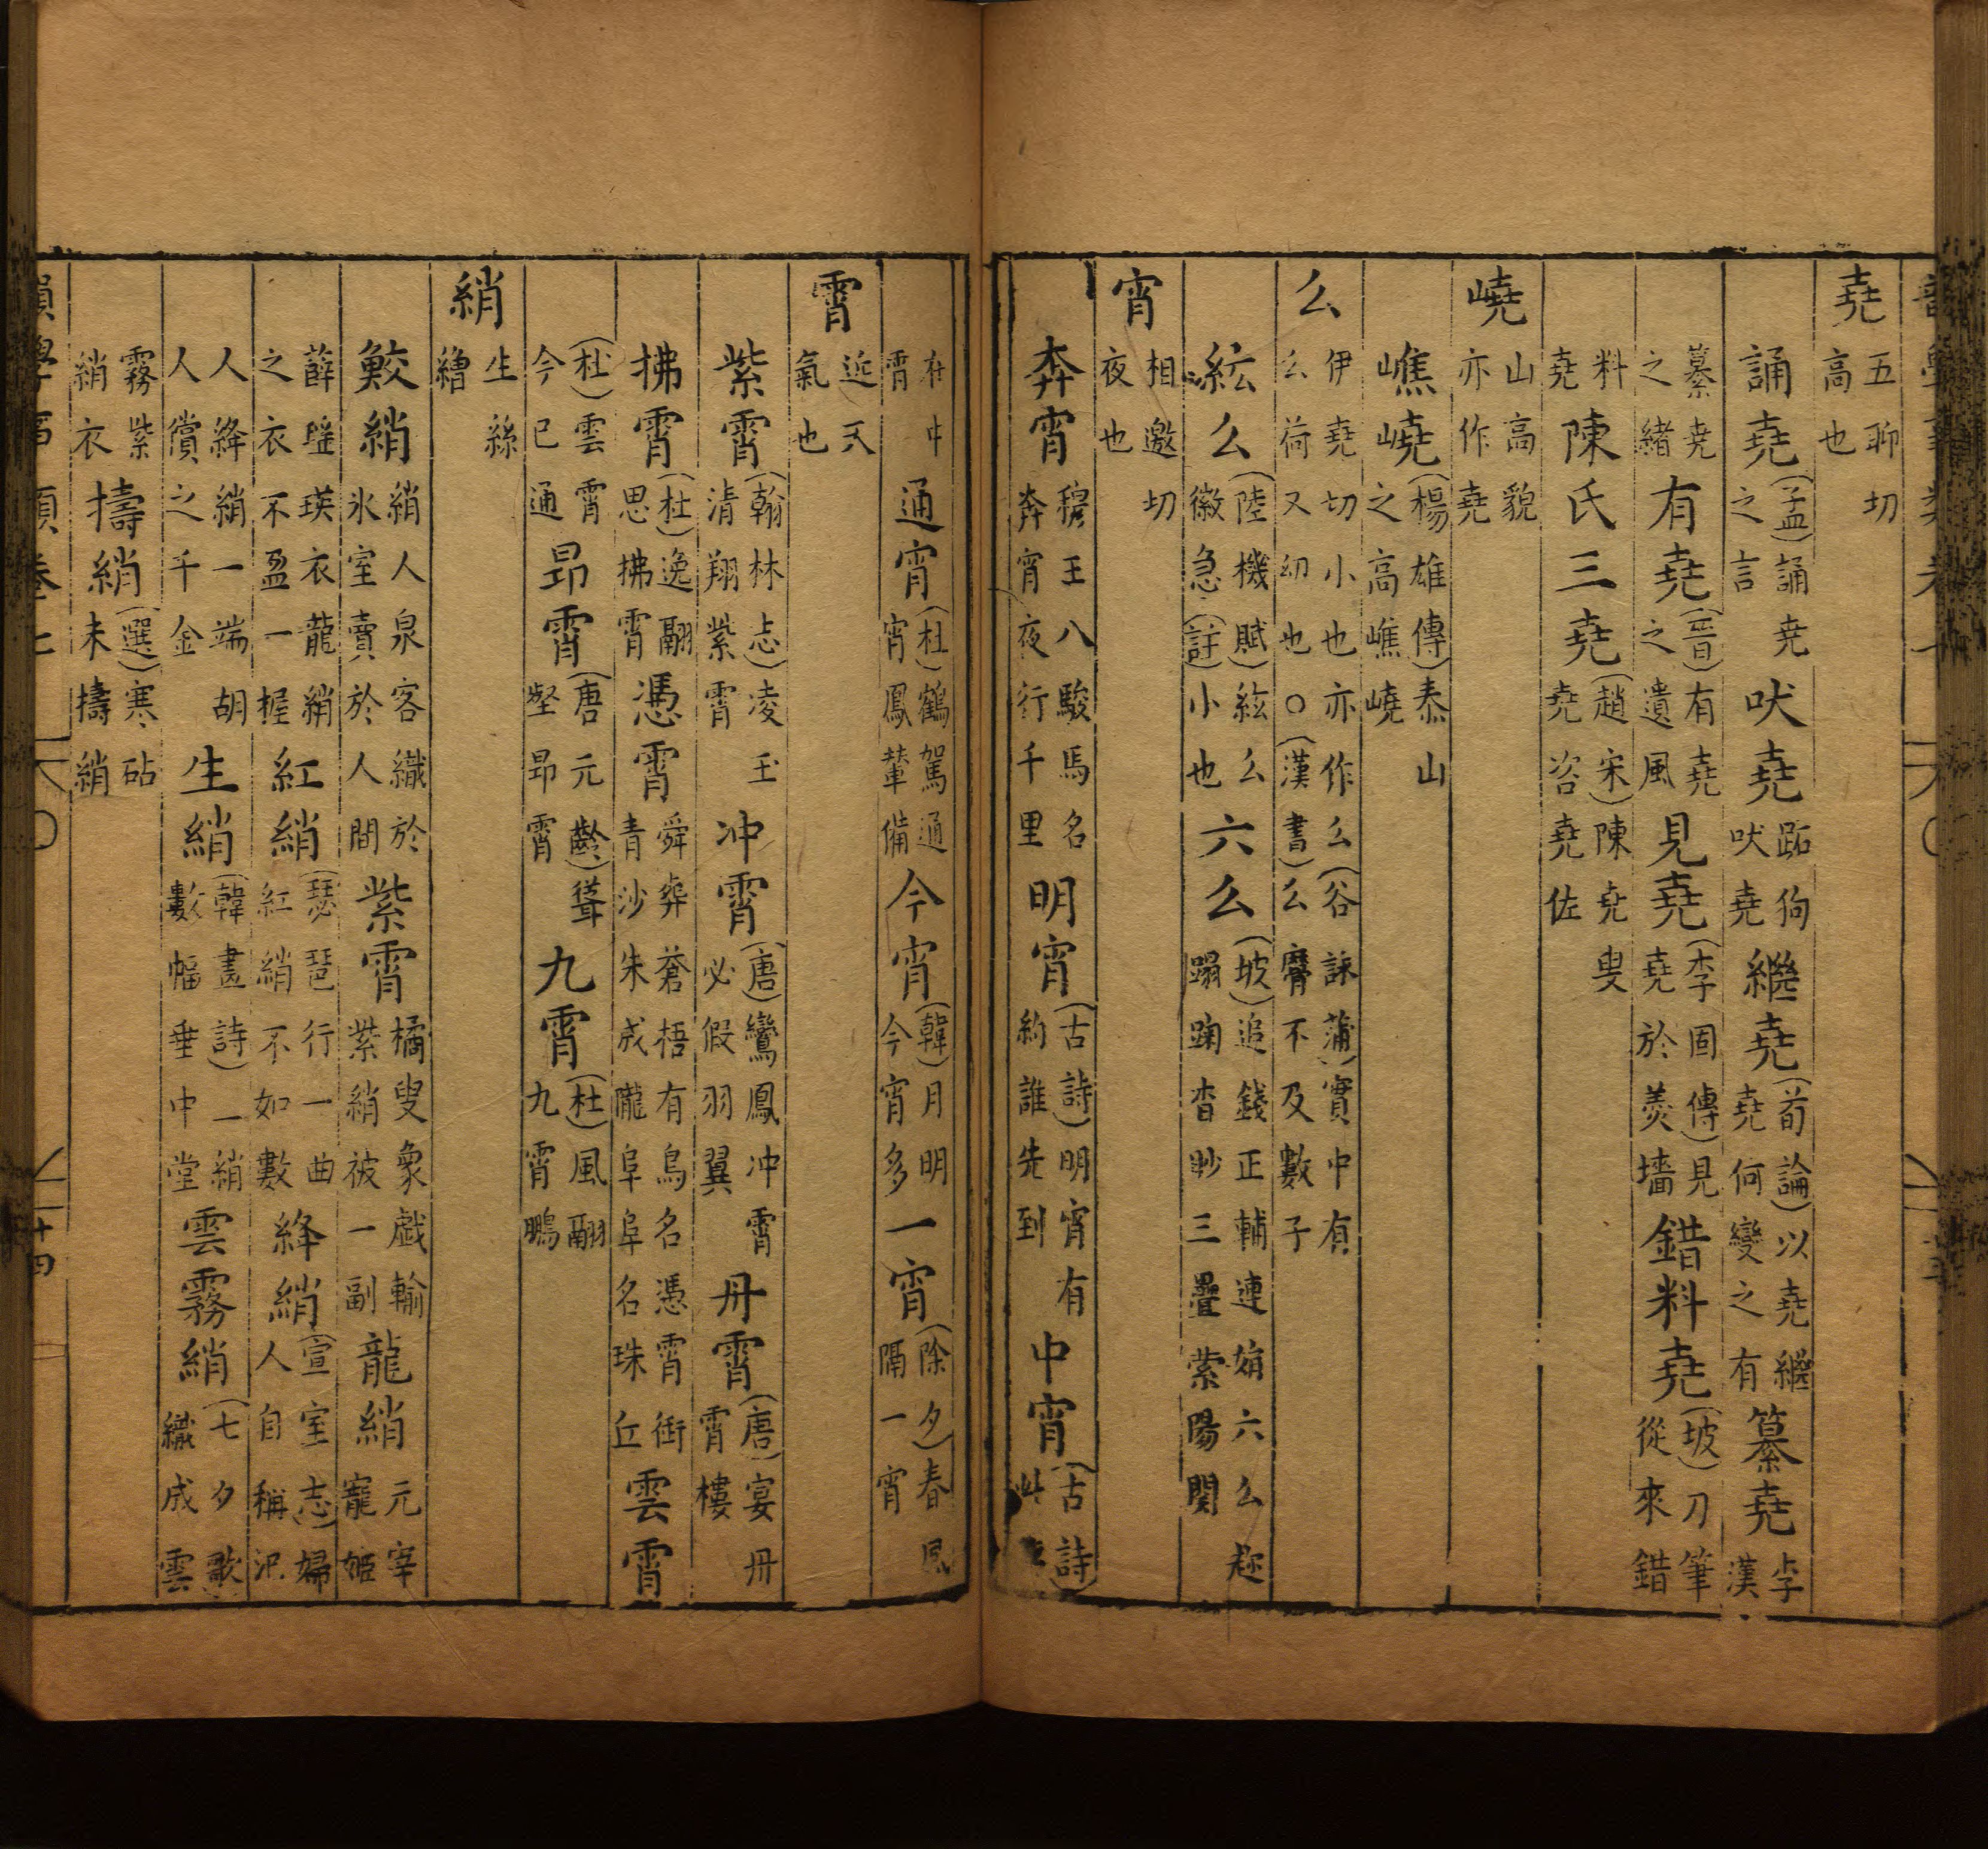 堯 五聊切高也
誦堯(孟)誦堯之言 吠堯 跖狗吠堯 繼堯(荀論)以堯繼堯何變之有 纂堯 李漢
纂堯之緒 有堯(晋)有堯之遺風 見堯(李固傳)見堯於羮墻 錯料堯(坡)刀筆從來錯
料堯 陳氏三堯(趙宋)陳堯叟堯咨堯佐
嶢 山高貌亦作堯
嶕嶢(楊雄傳)泰山之高嶕嶢
么 伊堯切小也亦作么(谷詠蒲)實中有么荷又幼也○(漢書)么麿不及數子
絃么(陸機賦)絃么徽急(註)小也 六么(坡)追錢正輔連娟六么趂蹋踘杳眇三疊縈陽関
宵 相邀切夜也
奔宵 穆王八駿馬名奔宵夜行千里 明宵(古詩)明宵有約誰先到 中宵(古詩)此
在中宵 通宵(杜)鶴駕通宵鳳輦備 今宵(韓)月明今宵多 一宵(除夕)春風隔一宵
霄 近天氣也
紫霄(翰林志)凌玉清翔紫霄 冲霄(唐)鸞鳳冲霄必假羽翼 丹霄(唐)宴丹霄樓
拂霄(杜)逸翮思拂霄 憑霄 舜葬蒼梧有鳥名憑霄銜青沙朱成隴阜阜名珠丘 雲霄
(杜)雲霄今已通 昂霄(唐元齡)聳壑昂霄 九霄(杜)風翮九霄鵬
綃 生絲繒
鮫綃 綃人泉客織於氷室賣於人間 紫霄 橘叟象戱輸紫綃被一副 龍綃 元宰寵姬
薛瑶瑛衣龍綃之衣不盈一握 紅綃(琵琶行)一曲紅綃不如數 絳綃(宣室志)婦人自稱泥
人絳綃一端胡人償之千金 生綃(韓畫詩)一綃數幅垂中堂 雲霧綃(七夕歌)織成雲
霧紫綃衣 擣綃(選)寒砧未擣綃